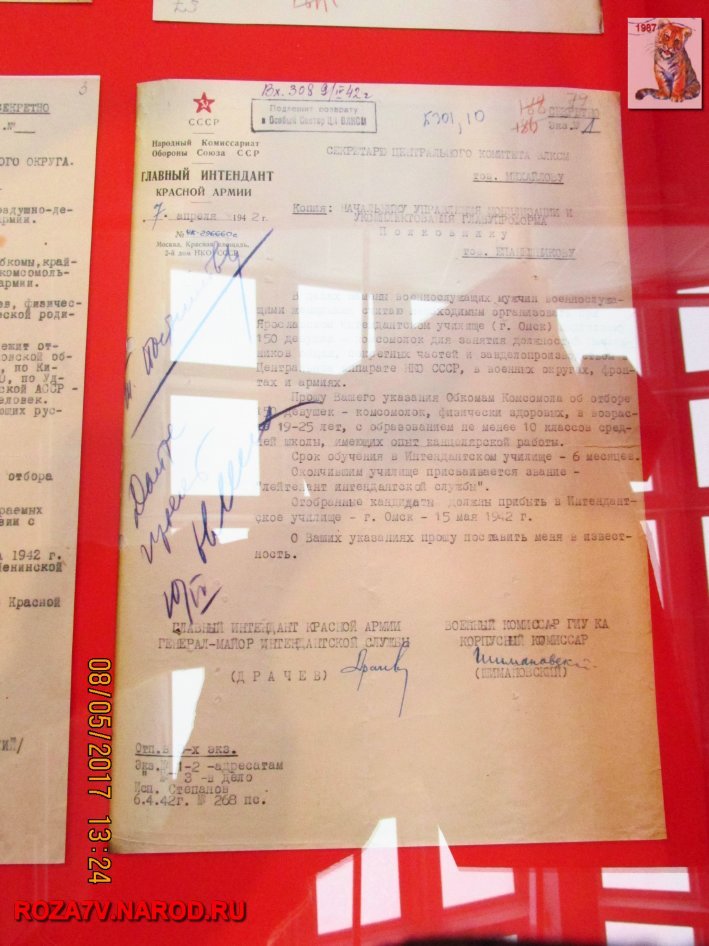 СЕКРЕТНО
.№
ОГО ОКРУГА.
здушно-де-
армии.
бкомы, край-
комсомоль-
армии.
ев, физичес-
ческой роди-
лежит от-
овской об-
, по Ки-
О, по Уд-
ской АССР -
еловек.
ющих рус-
отбора
раемых
вии с
я 1942 г.
Ленинской
Красной
3
1987
Вх. 308 9/IV 42 г
Подлежит возврату
в Особый Сектор ЦК ВЛКСМ
СССР
Народный Комиссариат
Обороны Союза ССР
ГЛАВНЫЙ ИНТЕНДАНТ
КРАСНОЙ АРМИИ
7 апреля 1942 г.
№
Москва, Красная площадь,
2-й дом НКО СССР
188 79
185
СЕКРЕТНО
Экз.№ 1
СЕКРЕТАРЮ ЦЕНТРАЛЬНОГО КОМИТЕТА ВЛКСМ
тов. МИХАЙЛОВУ
Копия: НАЧАЛЬНИКУ УПРАВЛЕНИЯ МОБИЛИЗАЦИИ И
УКОМПЛЕКТОВАНИЯ
Полковнику
тов.
В целях замены военнослужащих мужчин военнослужа-
щими женщинами считаю необходимым организовать при
Ярославском Интендантском училище (г. Омск)
150 девушек - комсомолок для занятия должностей
ников секретных частей и завделопроизводством в
Центральном Аппарате НКО СССР, в военных округах, фрон-
тах и армиях.
Прошу Вашего указания Обкомам Комсомола об отборе
150 девушек - комсомолок, физически здоровых, в возрас-
те 19-25 лет, с образованием не менее 10 классов сред-
ней школы, имеющих опыт канцелярской работы.
Срок обучения в Интендантском училище - 6 месяцев.
Окончившим училище присваивается звание -
"Лейтенант интендантской службы".
Отобранные кандидаты должны прибыть в Интендант-
ское училище - г. Омск - 15 мая 1942 г.
О Ваших указаниях прошу поставить меня в извест-
ность.
10/IV
ГЛАВНЫЙ ИНТЕНДАНТ КРАСНОЙ АРМИИ
ГЕНЕРАЛ-МАЙОР ИНТЕНДАНТСКОЙ СЛУЖБЫ
(ДРАЧЕВ)
ВОЕННЫЙ КОМИССАР ГИУ КА
КОРПУСНЫЙ КОМИССАР
Шимановский
(ШИМАНОВСКИЙ)
Отп.в 3-х экз.
Экз.№ 1-2 -адресатам
" № 3 -в дело
Исп. Степанов
6.4.42г. № 268 пс.
08/05/2017 13:24
ROZATV.NAROD.RU